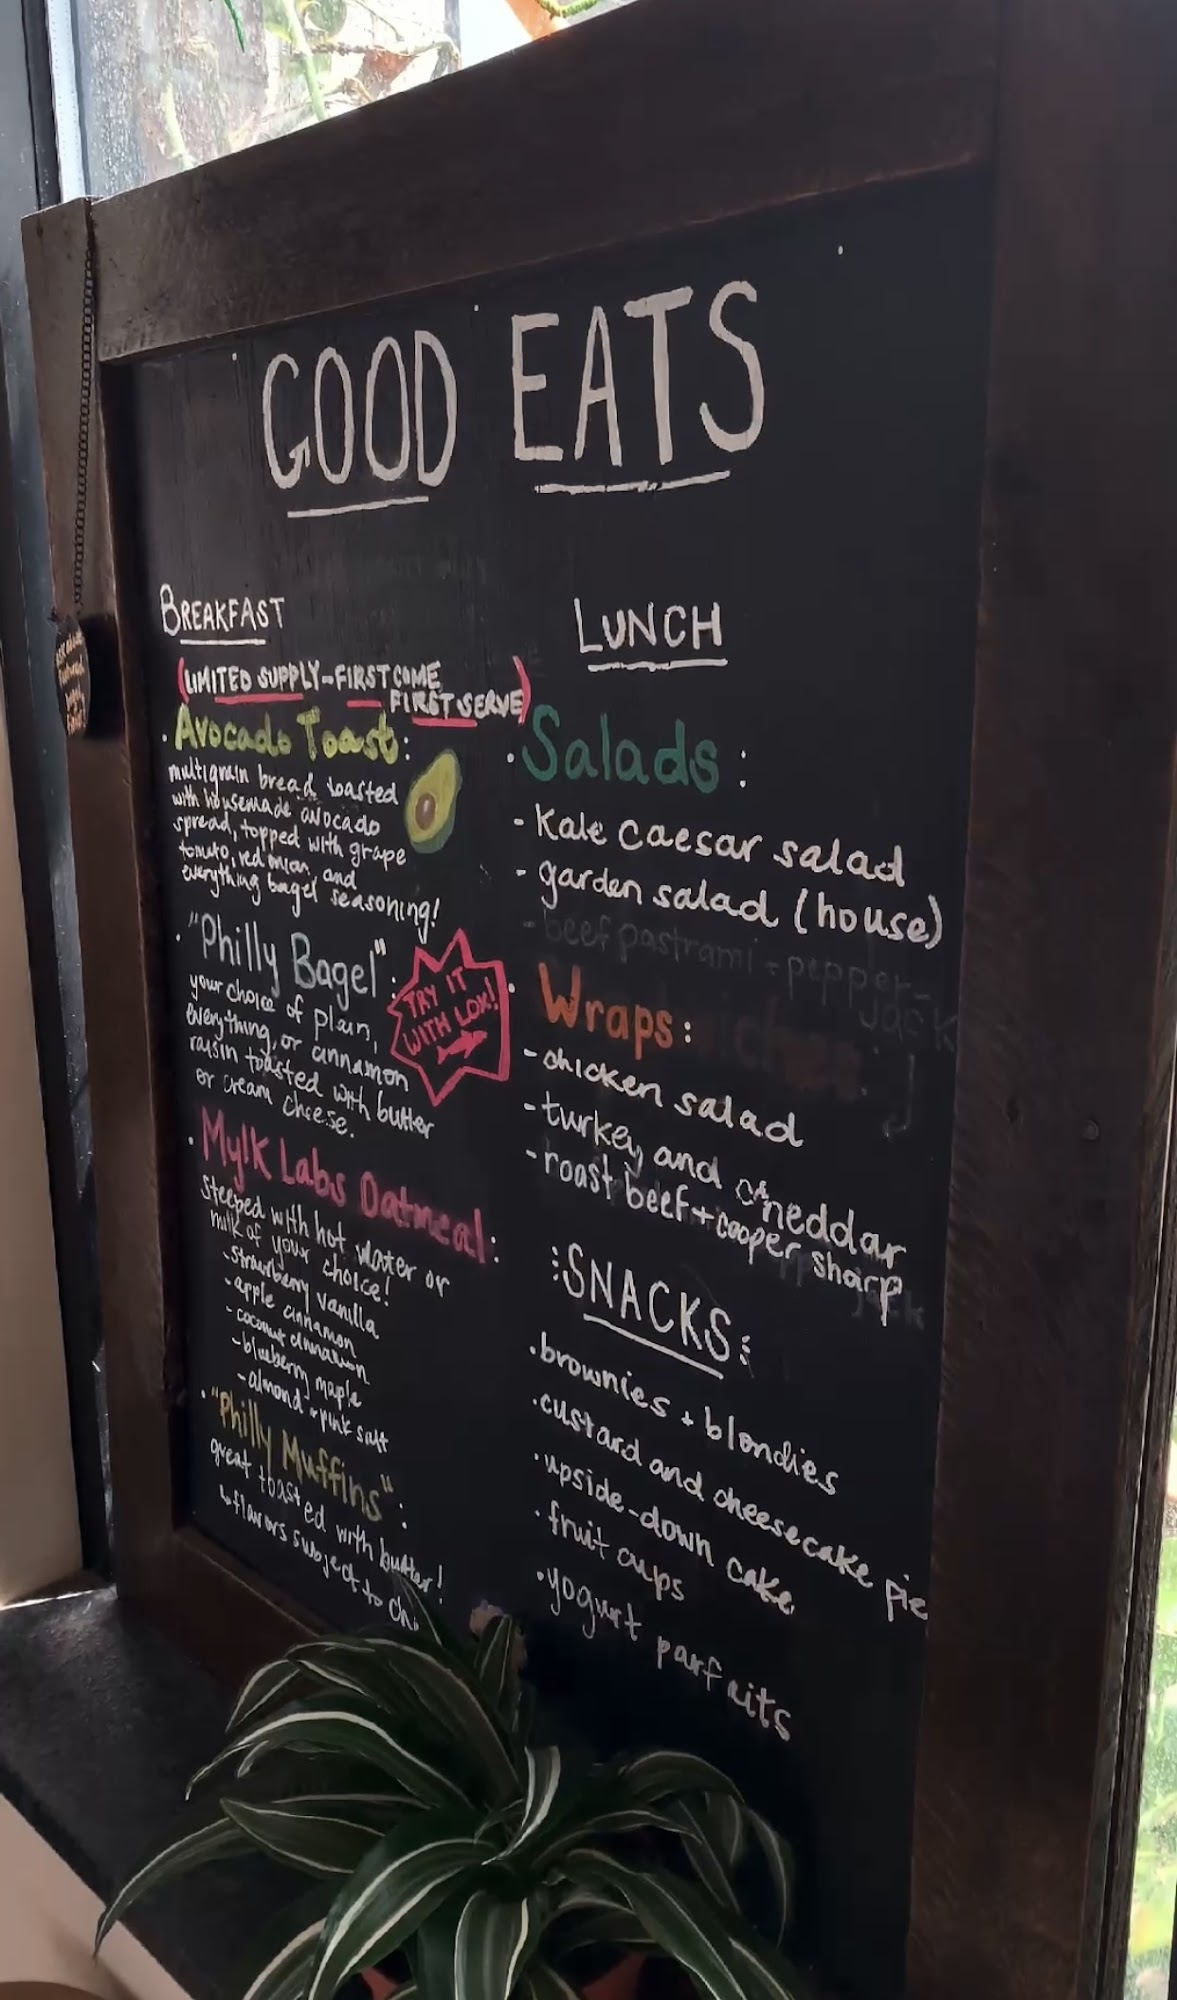 GOOD EATS
BREAKFAST
(LIMITED SUPPLY-FIRST COME
FIRST SERVE)
· Avocado Toast:
multigrain bread toasted
with housemade avocado
spread, topped with grape
tomato, red onion, and
everything bagel seasoning!
· "Philly Bagel":
your choice of plain,
everything, or cinnamon
raisin toasted with butter
or cream cheese.
TRY IT
WITH LOX!
· Mylk Labs Oatmeal:
steeped with hot water or
milk of your choice!
-strawberry vanilla
-apple cinnamon
-coconut cinnamon
-blueberry maple
-almond + pink salt
· "Philly Muffins":
great toasted with butter!
↳flavors subject to
LUNCH
· Salads:
- Kale Caesar salad
- garden salad (house)
- beef pastrami + pepper-
jack
· Wraps:
- chicken salad
- turkey and cheddar
- roast beef + cooper sharp
jack
:SNACKS:
· brownies + blondies
· custard and cheesecake pie
· upside-down cake
· fruit cups
· yogurt parfaits